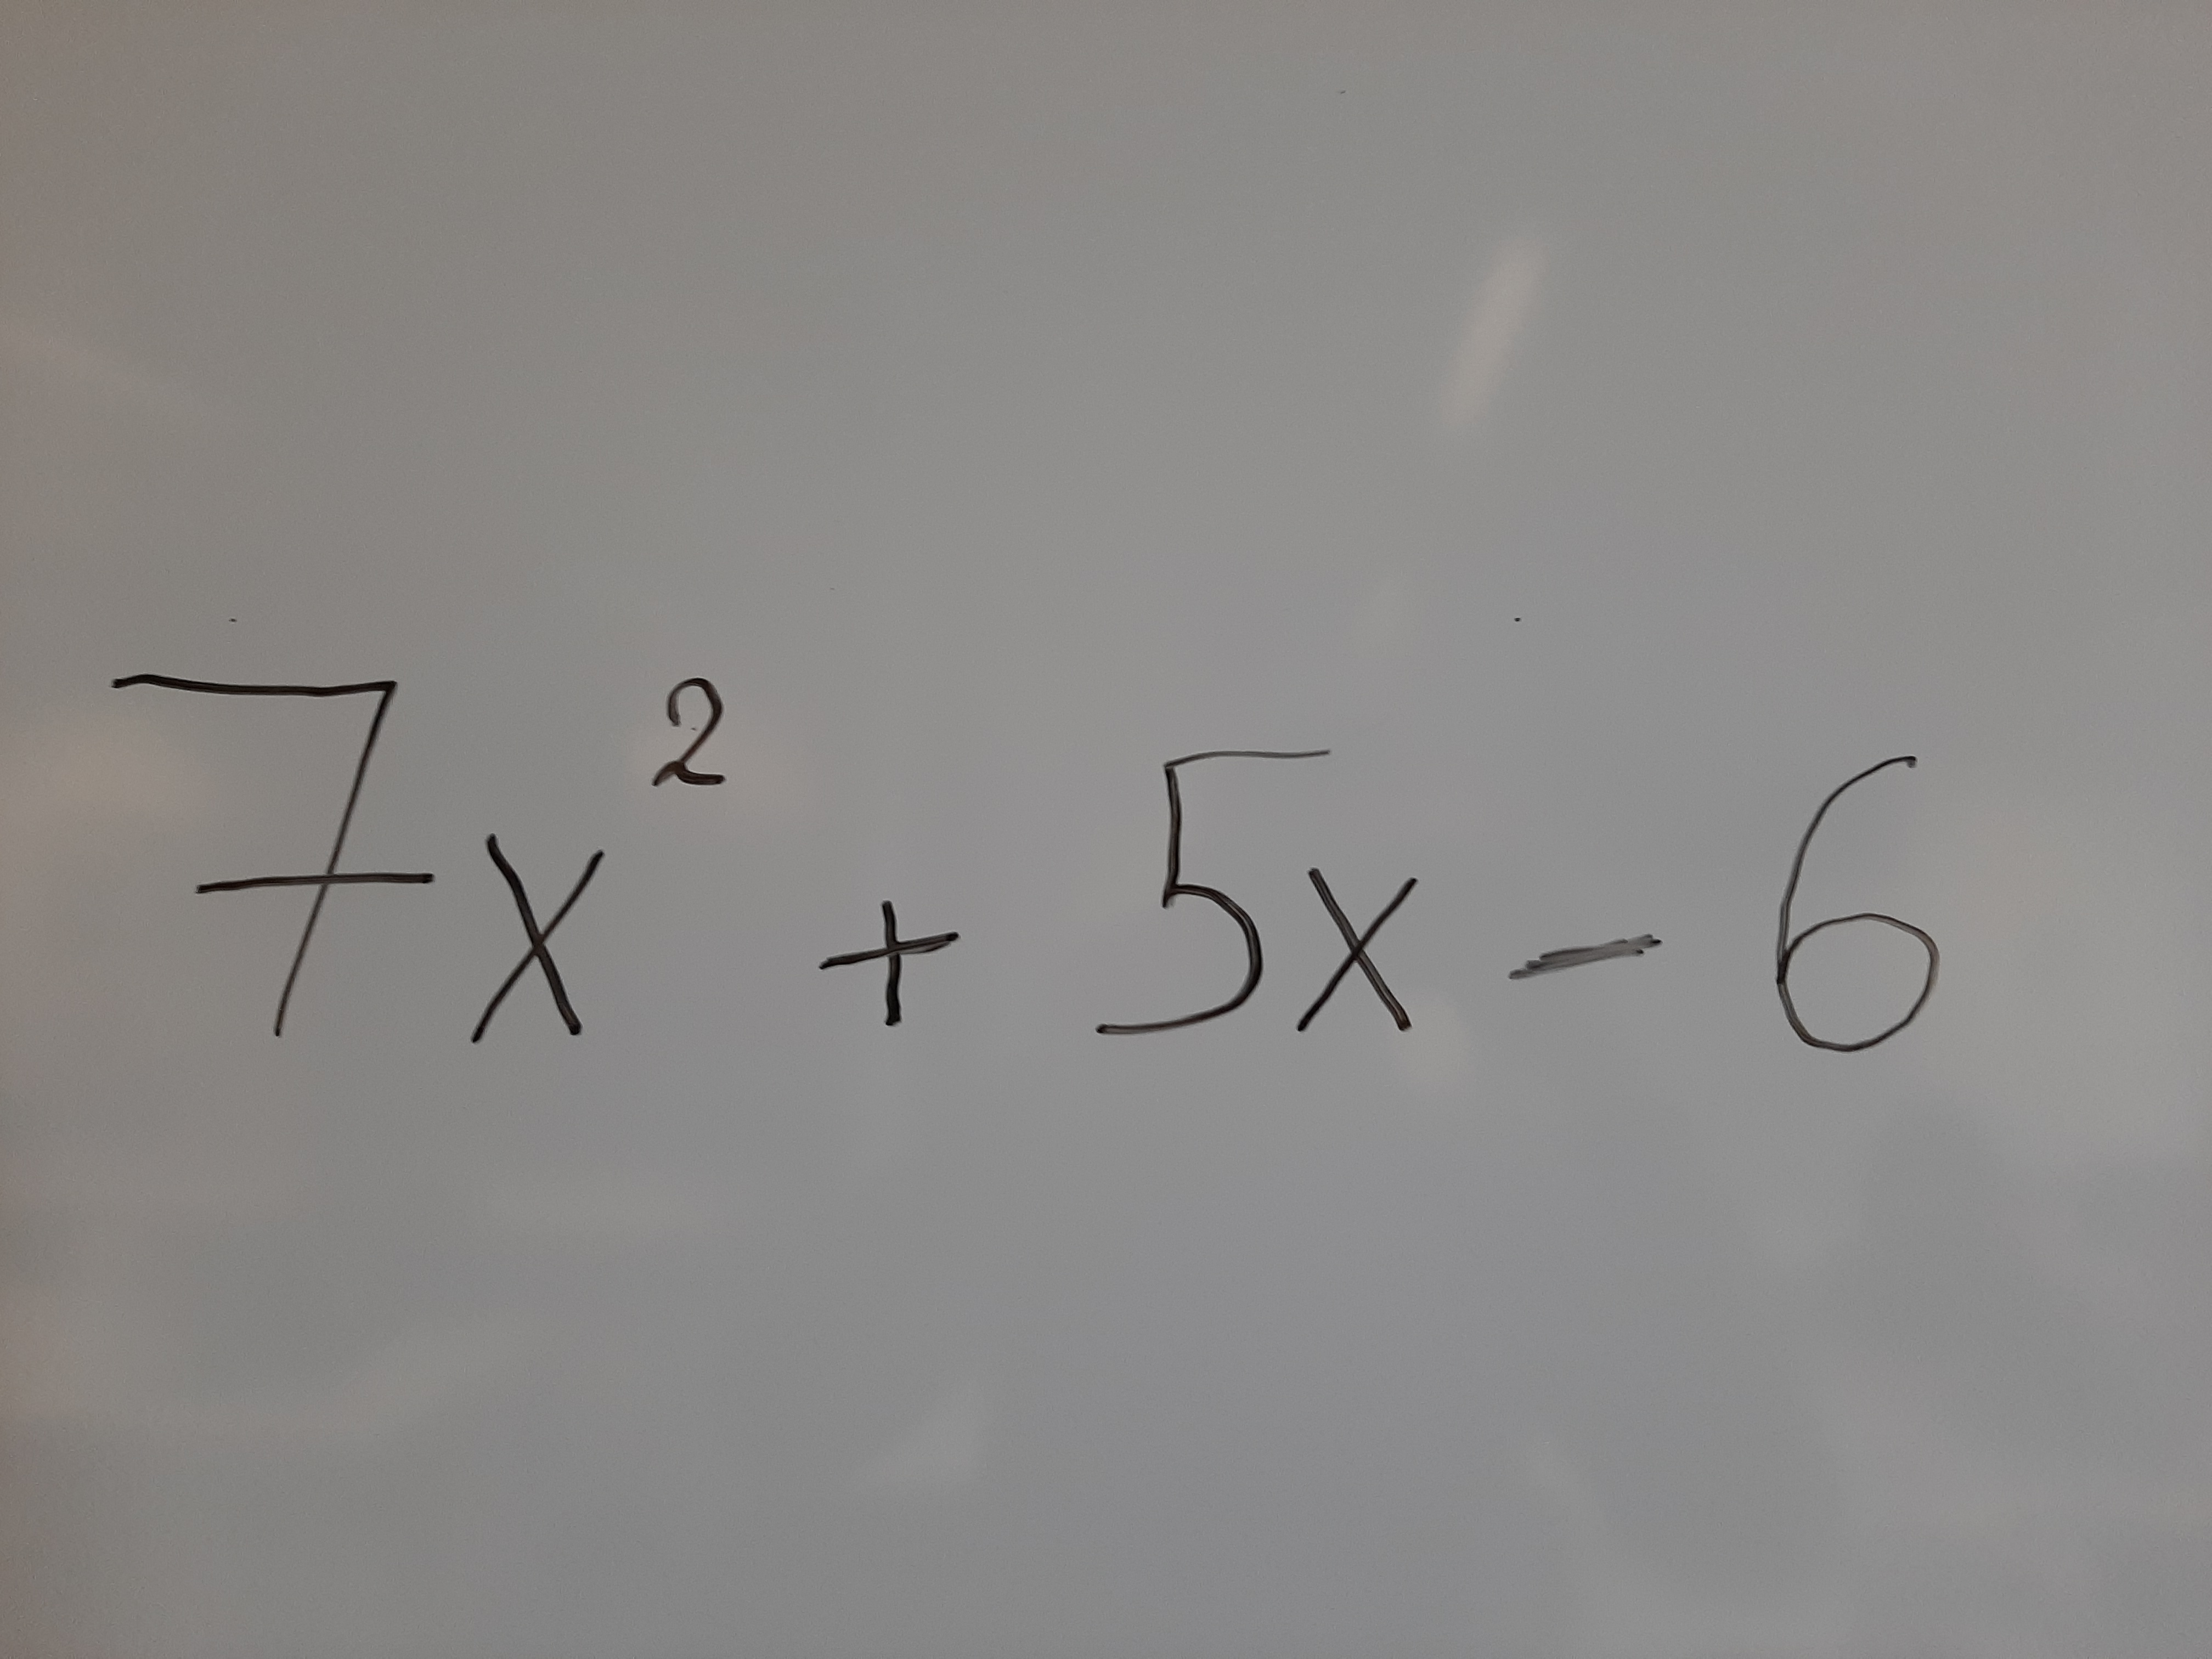 7x² + 5x - 6